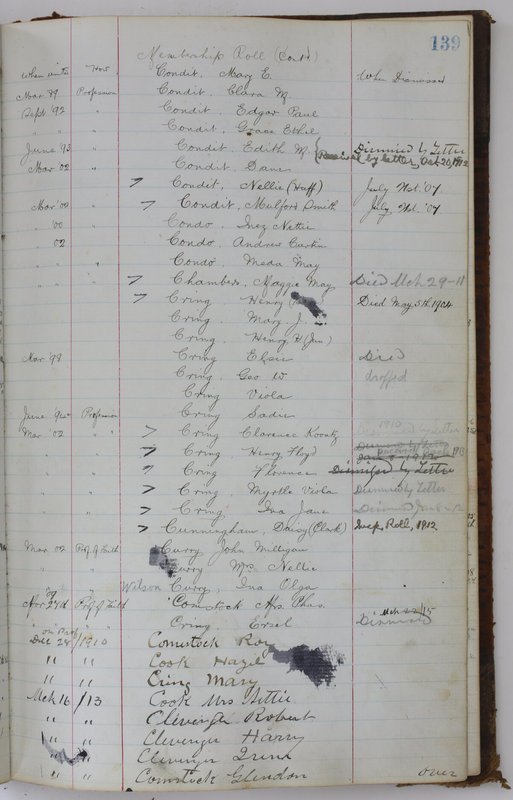 139
Membership Roll (Cont'd)
When How Condit, Mary E. When Dismissed
Mar 89 Profession Condit, Clara M.
Sept '92 " Condit, Edgar Paul
" " " Condit, Grace Ethel
June '93 " Condit, Edith M. Dismissed by Letter
Received by letter, Oct 20, 1912
Mar '02 " Condit, Dane
Condit, Nellie (Huff) July '07
Mar '00 " Condit, Mulford Smith July '07
" '00 " Condo, Inez Nettie
" 02 " Condo, Andrew
" " " Condo, Meda May
" " " Chambers, Maggie May Died Mch 29-11
Cring, Henry Died May 5th 1904
Cring, Mary J.
Cring, Henry H (Jun)
Mar '98 Cring Elsie Died
Cring, Geo W dropped
Cring Viola
June Profession Cring Sadie
Mar '02 " " Cring, Clarence Koontz 1910 by Letter
" " Cring, Henry Floyd Dismissed by Letter
" " Cring Florence Dismissed by Letter
" " Cring, Myrtle Viola Dismissed by Letter
" " Cring, Ina Jane
" " Cunningham, Daisy (Clark) Roll, 1912
Mar 02 Curry John Milligan
" " Curry Mrs. Nellie
" " Wilson Curry, Ina Olga
09
Comstock Mrs. Chas.
Cring, Ersel Dismissed Mch 15
on Prof
Dec 28/1910 Comstock Roy
" " Cook Hazel
" " Cring Mary
Mch 16/13 Cook Mrs Nettie
" " Clevenger Robert
" " Clevenger Harry
" " Clevenger Irene
" " Comstock Glendon over